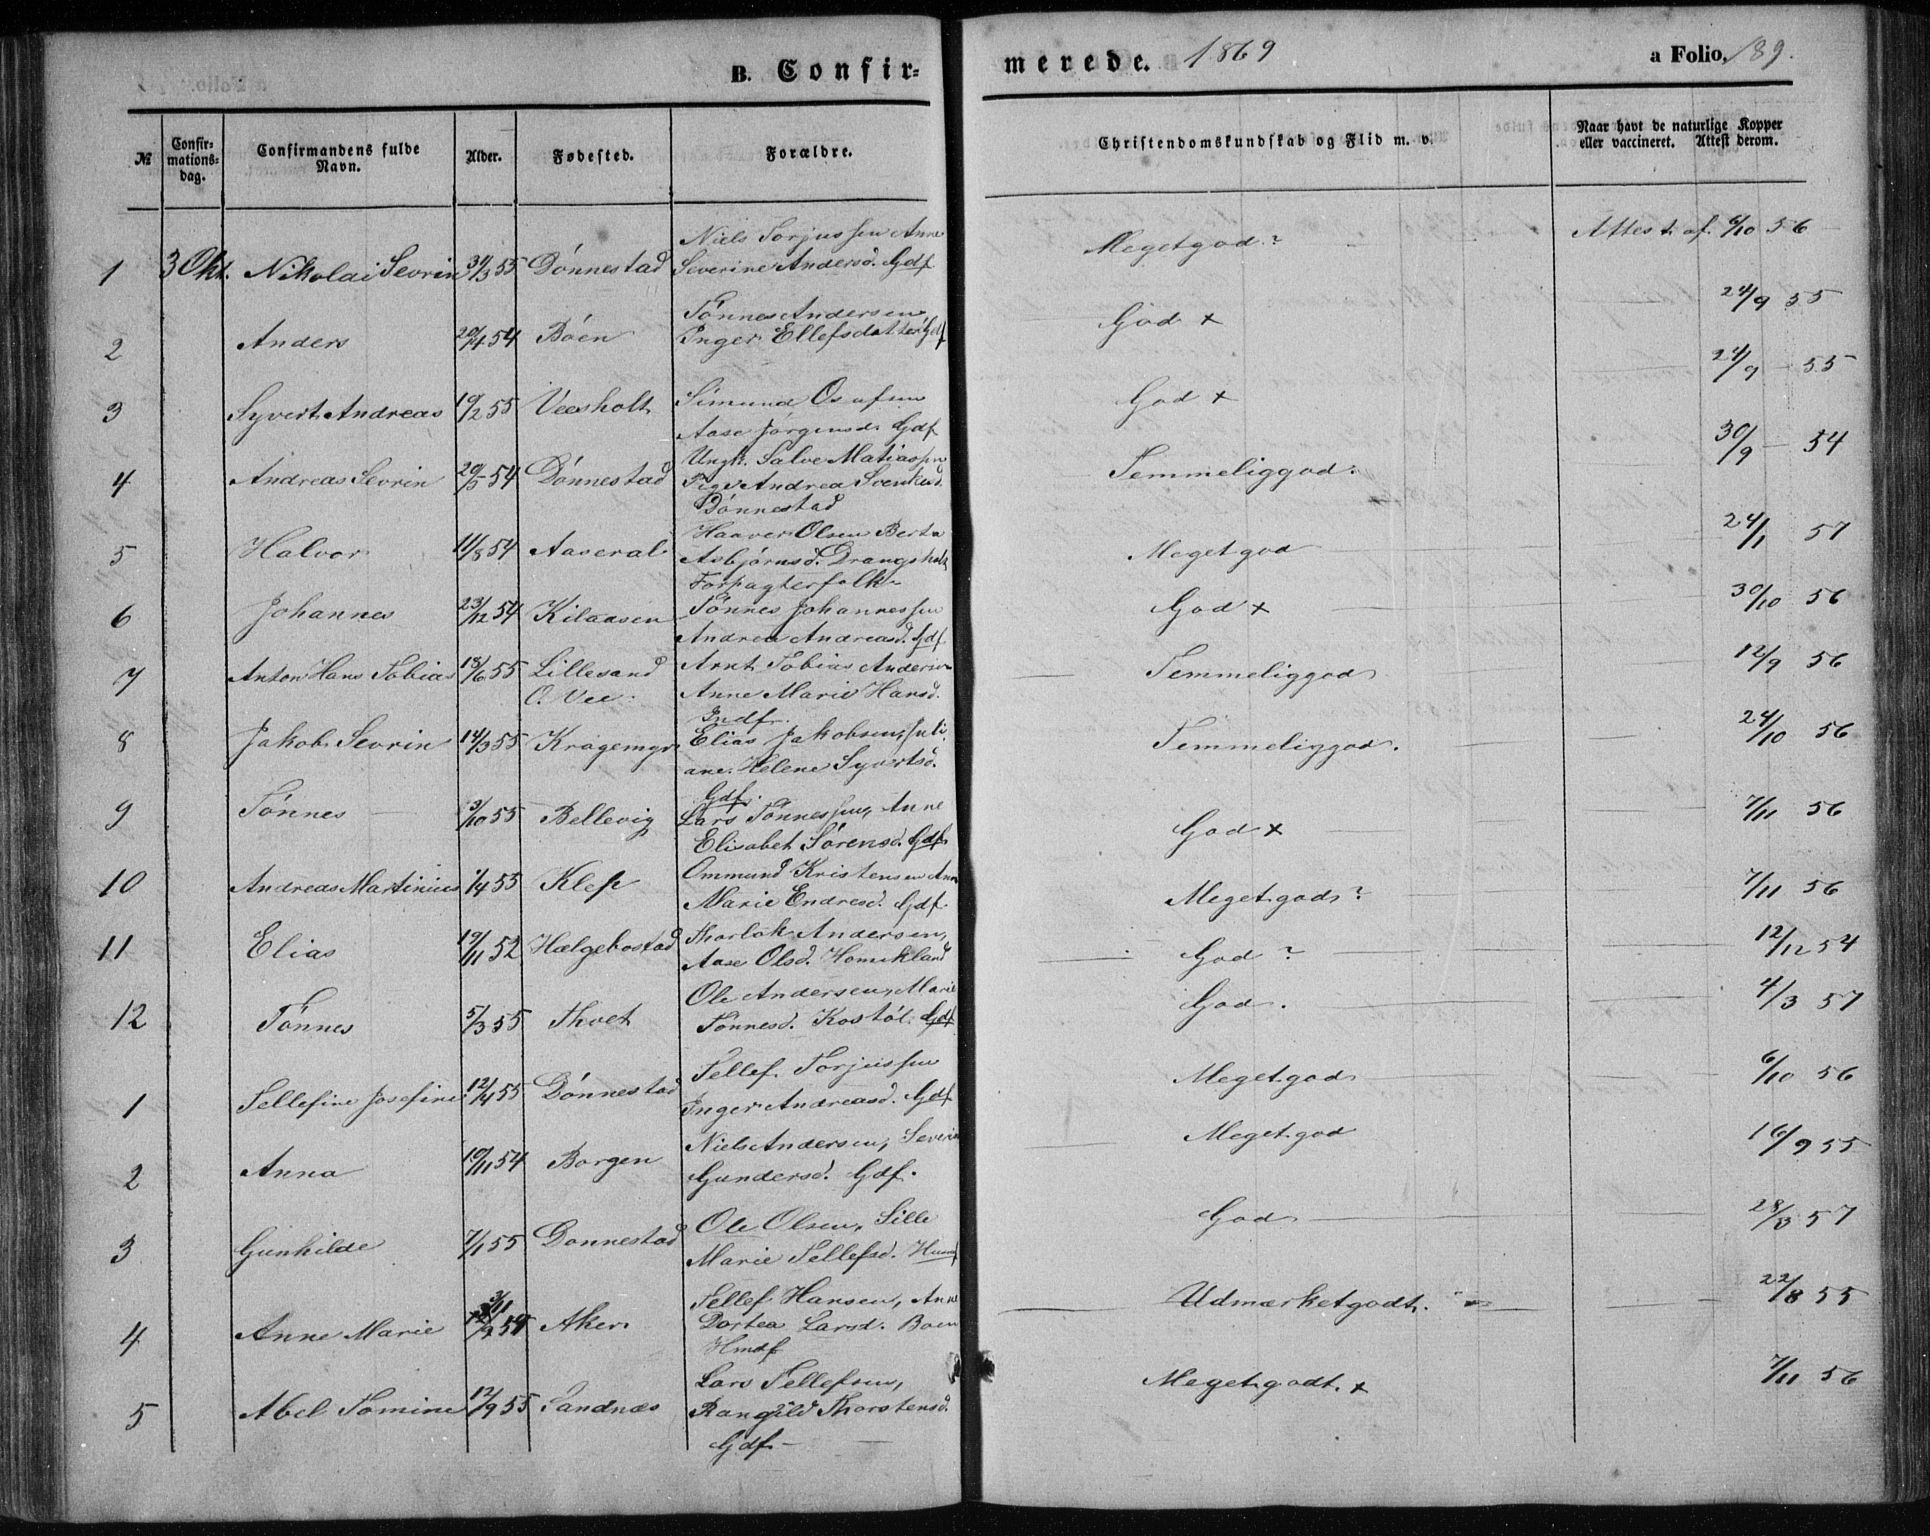 B. Confir-
merede. 1869
a Folio, 189.
№
Confirmationsdag.
Confirmandens fulde Navn.
Alder.
Fødested.
Forældre.
Christendomskundskab og Flid m. v.
Naar havt de naturlige Kopper eller vaccineret. Attest derom.
1 3 Okt. Nikolai Sevrin 31/3 55 Dønnestad Niels Torjussen Anne
Severine Andersd. Gdf Megetgod? Attest af 6/10 56
2 Anders 20/4 54 Bøen Tønnes Andersen
Inger Ellefsdatter Gdf God x 24/9 55
3 Syvert Andreas 19/2 55 Veesholt Simund Osufsen
Aase Jørgensd. Gdf God x 24/9 55
4 Andreas Sevrin 20/5 54 Dønnestad Ungk. Salve Matiassen
Pige Andrea Svenkesd.
Dønnestad Temmeliggod. 30/9 54
5 Halvor 11/8 54 Aaseral Haaver Olsen Berta
Asbjørnsd. Drangsholt
Forpagterfolk Megetgod 24/1 57
6 Johannes 23/12 54 Kilaasen Tønnes Johannessen
Andrea Andreasd. Gdf God x 30/10 56
7 Anton Hans Tobias 18/6 55 Lillesand
O. Vee. Arnt Tobias Andersen
Anne Marie Hansd.
Indf. Temmeliggod 12/9 56
8 Jakob Sevrin 14/3 55 Kragemyr Elias Jakobsen, Juli-
ane Helene Syvertsd.
Gdf. Temmeliggod. 24/10 56
9 Tønnes 3/10 55 Bellevig Lars Tønnessen, Anne
Elisabet Sørensd. Gdf God x 7/11 56
10 Andreas Martinius 1/4 55 Klep Ommund Kristensen Ann
Marie Endresd. Gdf. Megetgod? 7/11 56
11 Elias 19/11 52 Hælgebostad Thorlak Andersen,
Aase Olsd. Homekland God ? 12/12 54
12 Tønnes 5/3 55 Thvet Ole Andersen, Marie
Tønnesd. Kostøl. Gdf God. 4/3 57
1 Tellefine Josefine 12/4 55 Dønnestad Tellef Torjussen
Inger Andreasd. Gdf Megetgod 6/10 56
2 Anna 19/11 54 Borgen Niels Andersen, Severin
Gundersd. Gdf. Megetgod 16/9 55
3 Gunhilde 7/1 55 Donnestad Ole Olsen, Sille
Marie Tellefsd. Husmf God 28/3 57
4 Anne Marie 3/11 54 Aker Tellef Hansen, Anne
Dortea Larsd. Boen
Hmdf Udmærketgodt. 22/8 55
5 Abel Tomine 12/9 55 Sandnæs Lars Tellefsen,
Rangild Thorstensd.
Gdf. Megetgodt. x 7/11 56